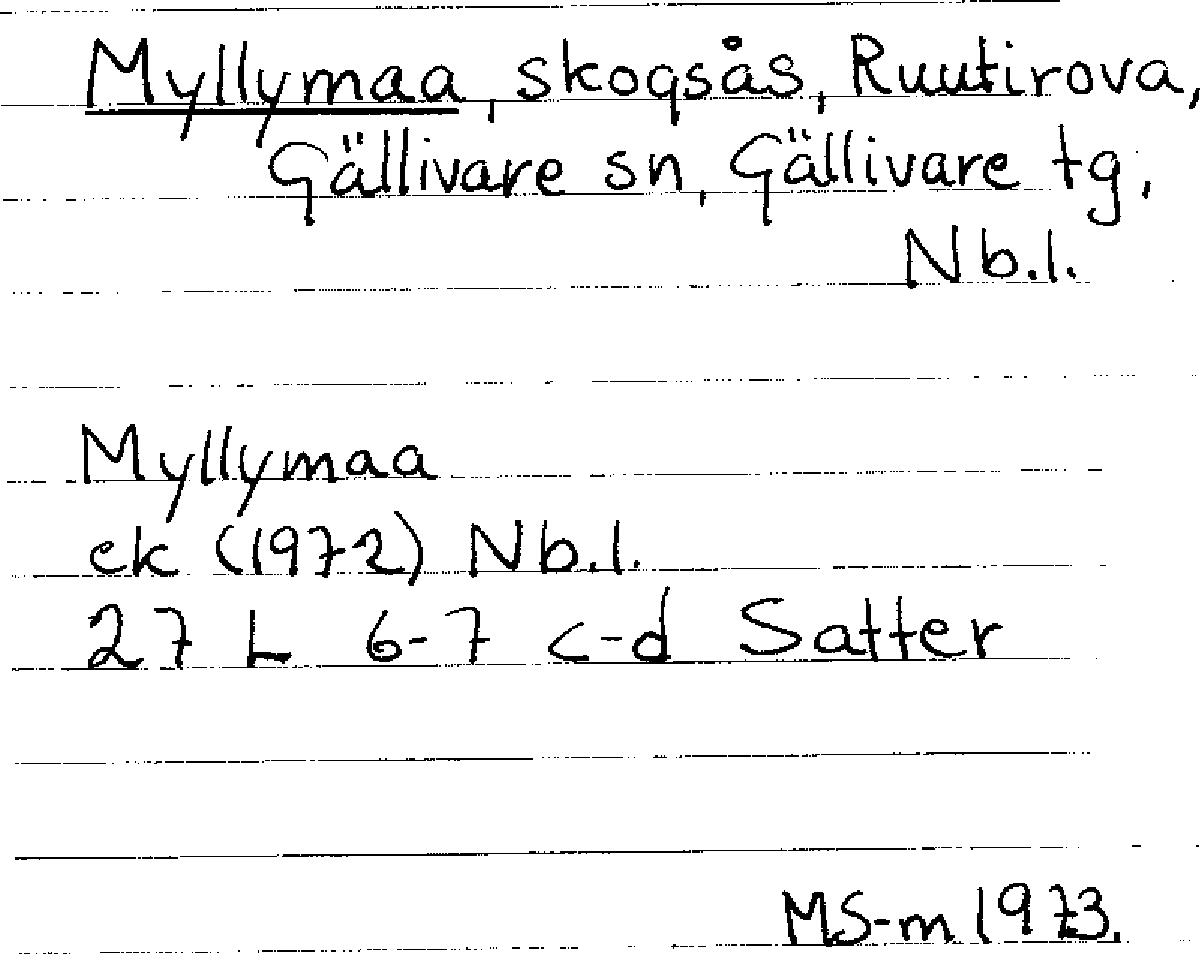 Myllymaa, skogsås, Ruutirova,
Gällivare sn, Gällivare tg,
Nb.l.
Myllymaa
ek (1972) Nb.l.
27 L 6-7 c-d Satter
MS-m 1973.